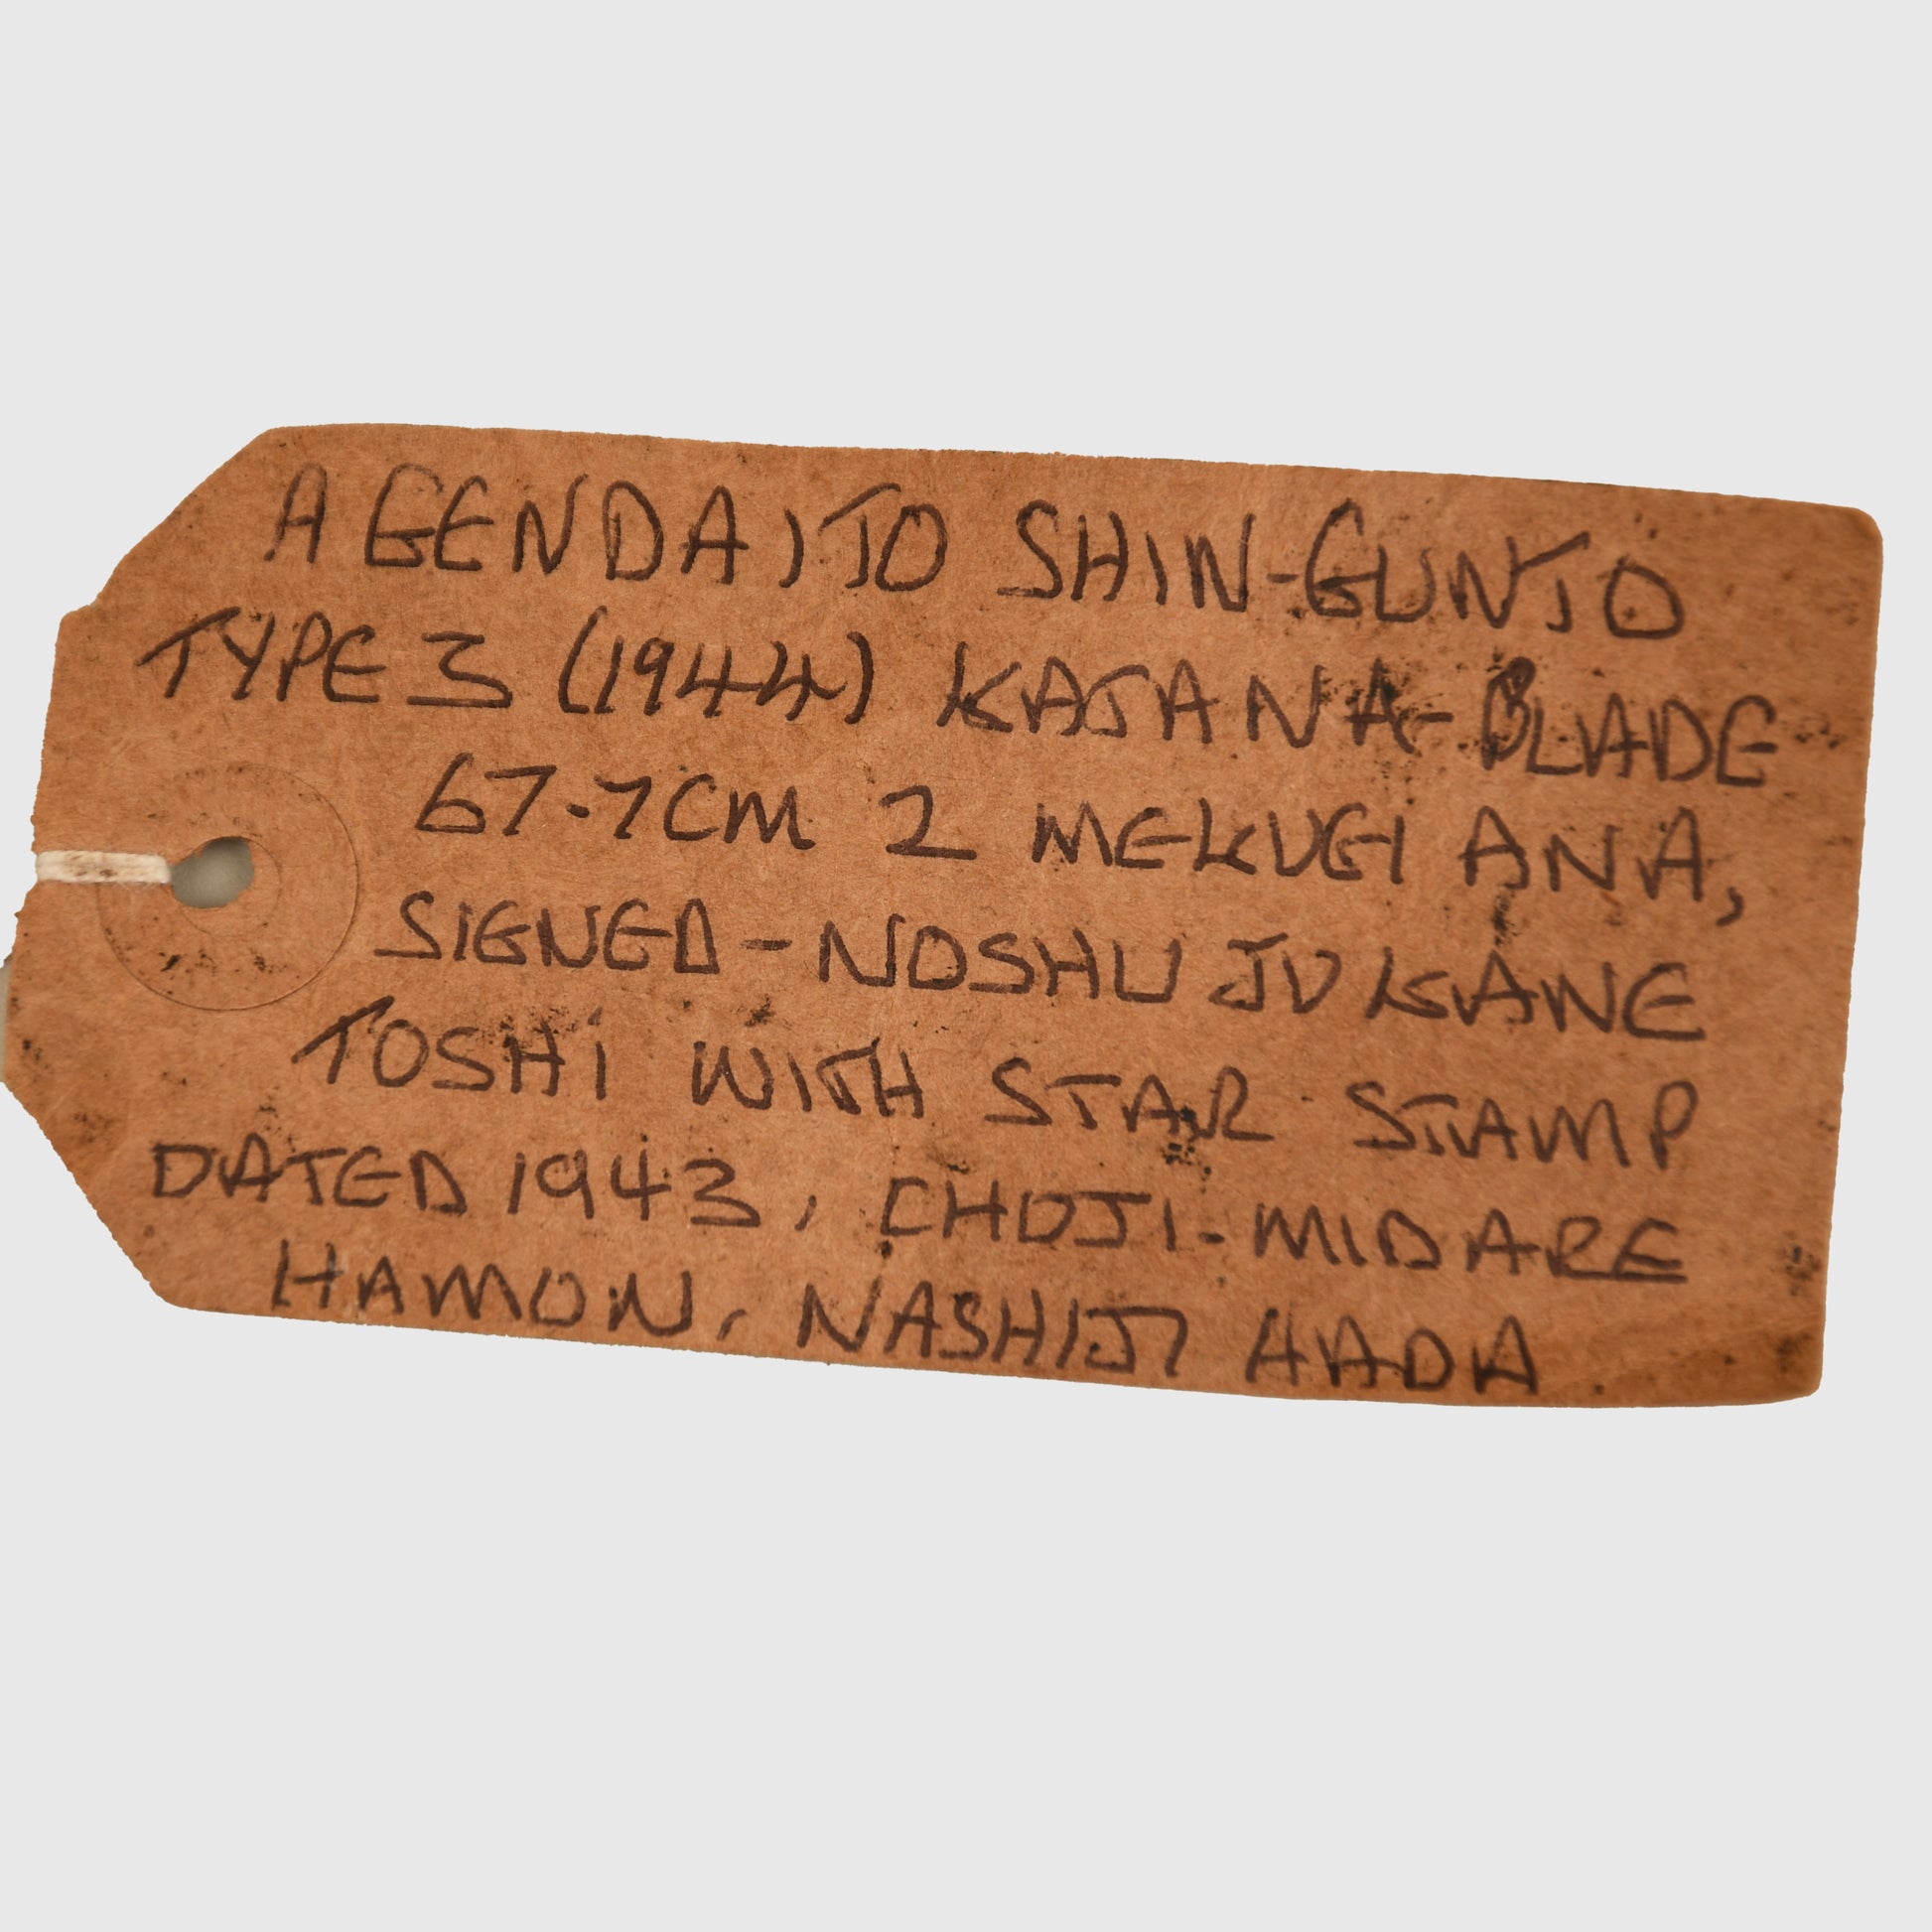 A GENDAITO SHIN-GUNTO
TYPE 3 (1944) KATANA-BLADE
67.7CM 2 MEKUGI ANA,
SIGNED - NOSHU JU KANE
TOSHI WITH STAR STAMP
DATED 1943, CHOJI-MIDARE
HAMON, NASHIJI HADA.